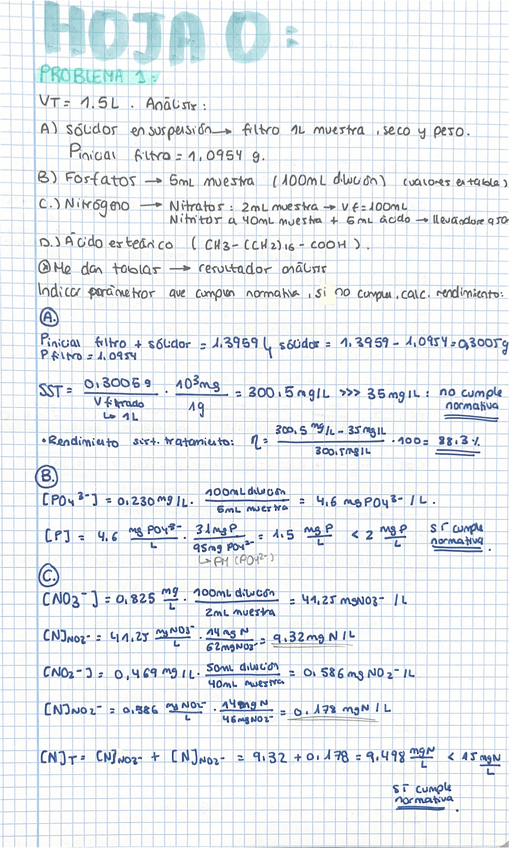 HOJA 0:
PROBLEMA 1:
VT = 1.5L. Análisis:
A) sólidos en suspensión → filtro 1L muestra, seco y peso.
Pinicial filtro = 1,0954 g.
B) Fosfatos → 5mL muestra (100mL dilución) (valores en tabla)
C.) Nitrógeno → Nitratos: 2mL muestra → Vf = 100mL
Nitritos a 40mL muestra + 5mL ácido → llevándose a 50
D.) Ácido esteárico (CH3-(CH2)16-COOH).
Me dan tablas → resultados análisis
Indicar parámetros que cumplen normativa, si no cumplen, calc. rendimiento:
A.
Pinicial filtro + sólidos = 1.3959 g sólidos = 1,3959 - 1,0954 = 0,3005g
P filtro = 1.0954
SST = 0,3005g / V filtrado · 10³mg / 1g = 300.5 mg/L >>> 35 mg/L: no cumple normativa
↳ 1L
• Rendimiento sist. tratamiento: η = 300.5 mg/L - 35 mg/L / 300.5 mg/L · 100 = 88.3%
B.
[PO4³⁻] = 0,230 mg/L · 100mL dilución / 5mL muestra = 4,6 mg PO4³⁻/L.
[P] = 4,6 mg PO4³⁻/L · 31mg P / 95mg PO4³⁻ = 1.5 mg P/L < 2 mg P/L SÍ cumple normativa.
↳ PM (PO4³⁻)
C.
[NO3⁻] = 0,825 mg/L · 100mL dilución / 2mL muestra = 41,25 mg NO3⁻/L
[N]NO3⁻ = 41,25 mg NO3⁻/L · 14 mg N / 62mg NO3⁻ = 9,32 mg N/L
[NO2⁻] = 0,469 mg/L · 50mL dilución / 40mL muestra = 0,586 mg NO2⁻/L
[N]NO2⁻ = 0,586 mg NO2⁻/L · 14mg N / 46mg NO2⁻ = 0,178 mg N/L
[N]T = [N]NO3⁻ + [N]NO2⁻ = 9,32 + 0,178 = 9,498 mg N/L < 15 mg N/L
SÍ cumple normativa.